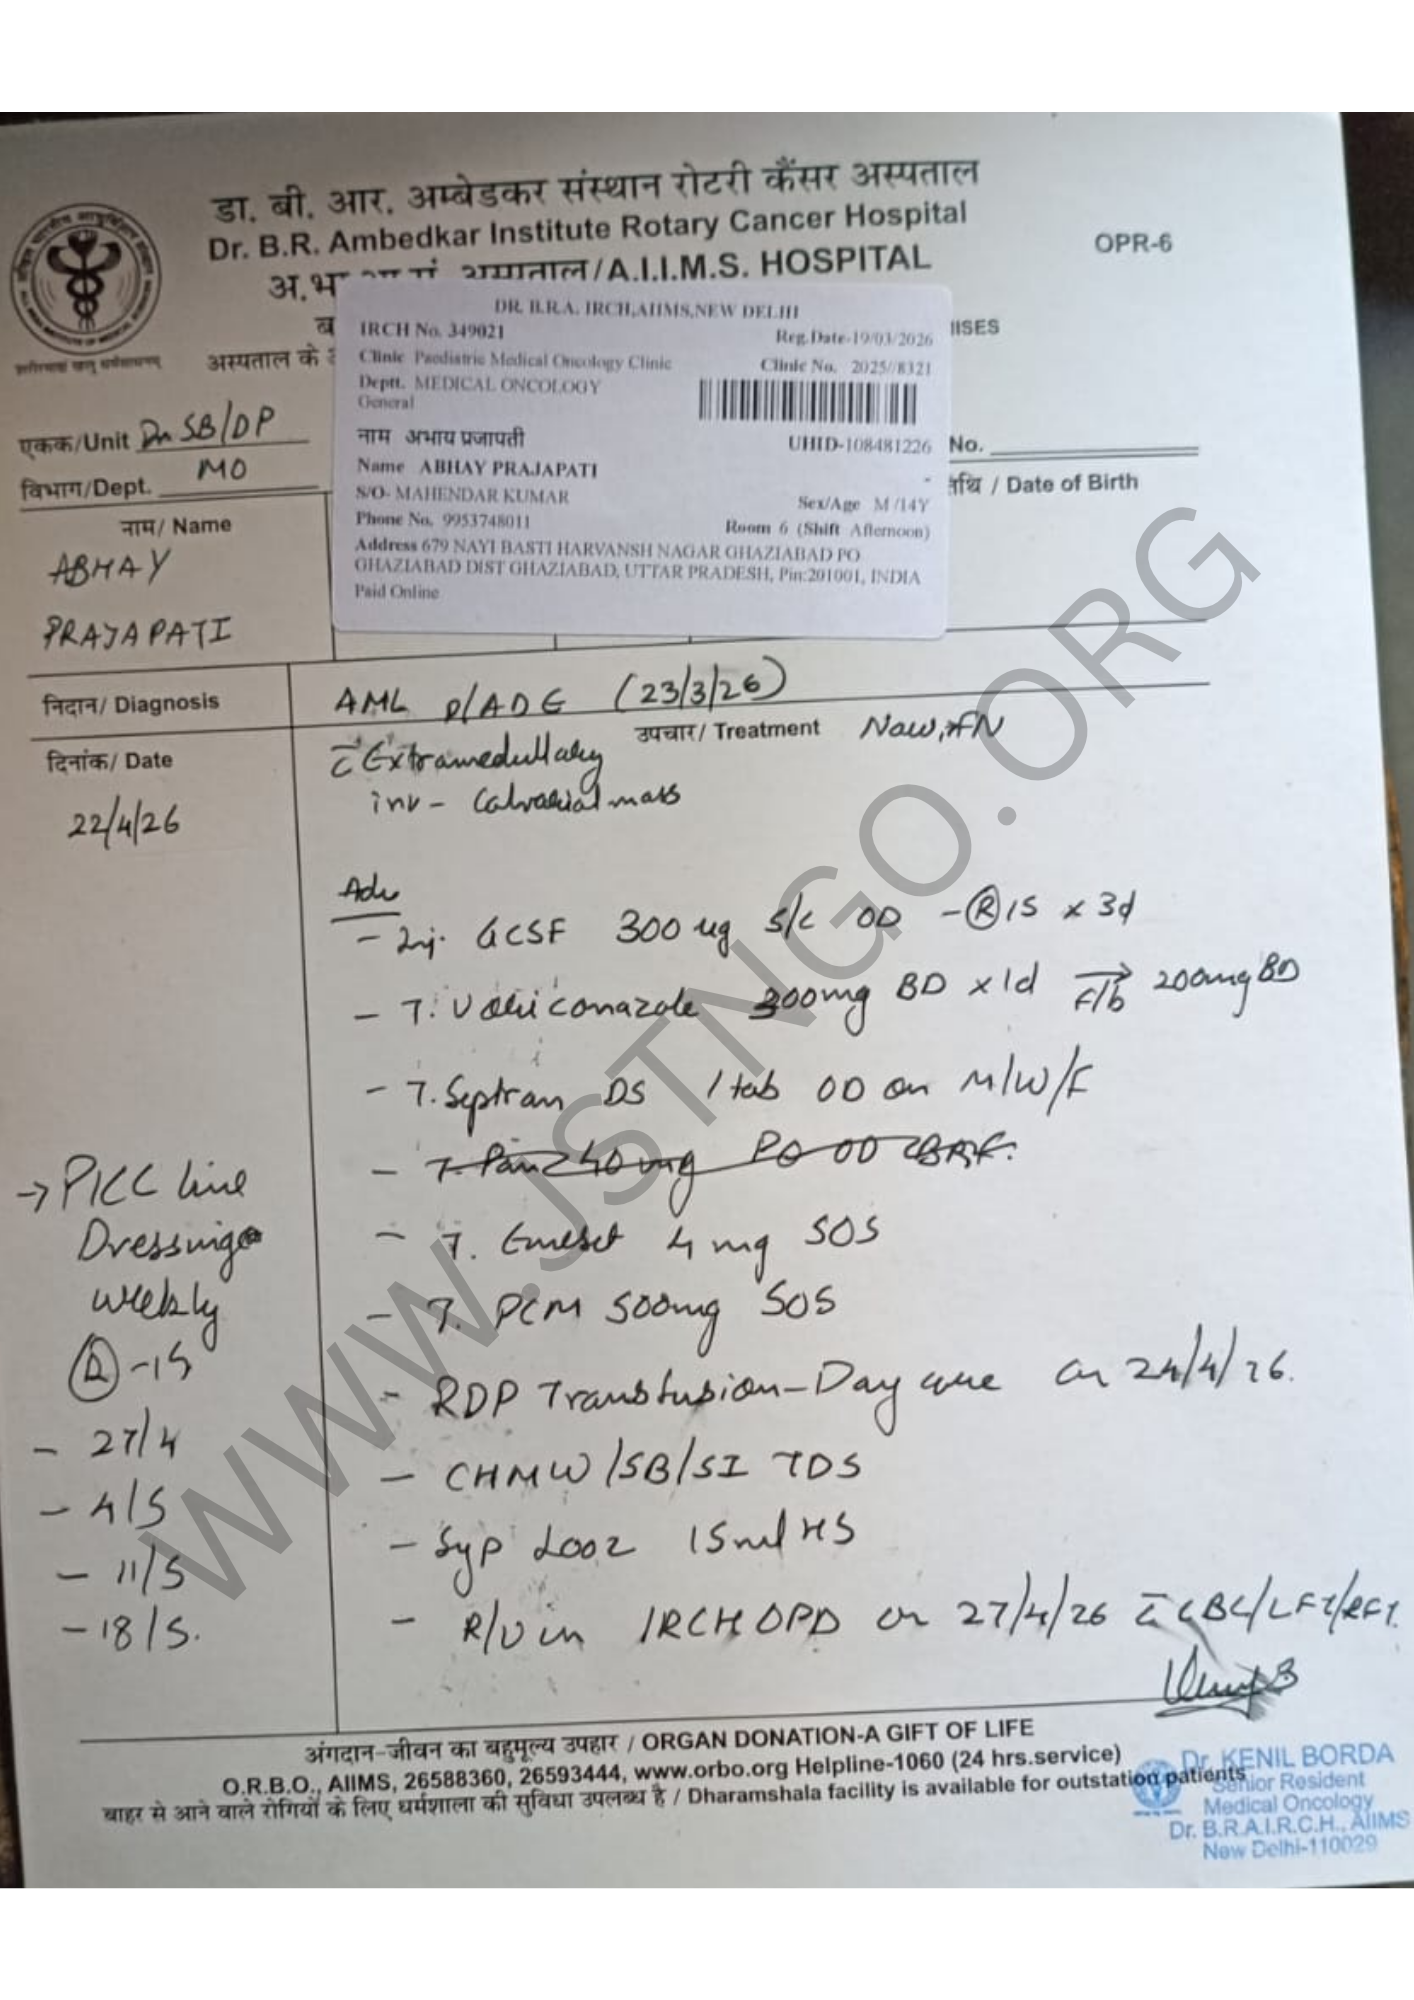 डा. बी. आर. अम्बेडकर संस्थान रोटरी कैंसर अस्पताल
Dr. B.R. Ambedkar Institute Rotary Cancer Hospital
OPR-6
अ.भ
अस्पताल/A.I.I.M.S. HOSPITAL
ब
MISES
अस्पताल के
DR. B.R.A. IRCH,AIIMS,NEW DELHI
IRCH No. 349021
Reg.Date-19/03/2026
Clinic Paediatric Medical Oncology Clinic
Clinic No. 2025//8321
Deptt. MEDICAL ONCOLOGY
General
नाम अभाय प्रजापती
UHID-108481226
Name ABHAY PRAJAPATI
S/O- MAHENDAR KUMAR
Sex/Age M /14Y
Phone No. 9953748011
Room 6 (Shift Afternoon)
Address 679 NAYI BASTI HARVANSH NAGAR GHAZIABAD PO
GHAZIABAD DIST GHAZIABAD, UTTAR PRADESH, Pin:201001, INDIA
Paid Online
एकक/Unit Dr SB/DP
No.
विभाग/Dept. MO
तिथि / Date of Birth
नाम/ Name
ABHAY
PRAJAPATI
निदान/ Diagnosis
AML P/ADE (23/3/26)
दिनांक/ Date
उपचार/ Treatment
c̄ Extramedullary
inv - Calvarial mass
22/4/26
Adv
- Inj. GCSF 300 ug s/c OD - Ⓡ 15 x 3d
- T. Voriconazole 300mg BD x 1d → F/b 200mg BD
- T. Septran DS 1 tab OD on M/W/F
- T. Pan 40 mg PO OD BBF.
- T. Emeset 4 mg SOS
- T. PCM 500mg SOS
- RDP Transfusion-Day care on 24/4/26.
- CHMW/SB/SI TDS
- Syp Looz 15ml HS
- R/v in IRCH OPD on 27/4/26 c̄ CBC/LFT/RFT.
→ PICC line
Dressing
weekly
Ⓡ-15
- 27/4
- 4/5
- 11/5
- 18/5.
अंगदान-जीवन का बहुमूल्य उपहार / ORGAN DONATION-A GIFT OF LIFE
O.R.B.O., AIIMS, 26588360, 26593444, www.orbo.org Helpline-1060 (24 hrs.service)
बाहर से आने वाले रोगियों के लिए धर्मशाला की सुविधा उपलब्ध है / Dharamshala facility is available for outstation patients
Dr. KENIL BORDA
Senior Resident
Medical Oncology
Dr. B.R.A.I.R.C.H., AIIMS
New Delhi-110029
WWW.JSTNGO.ORG